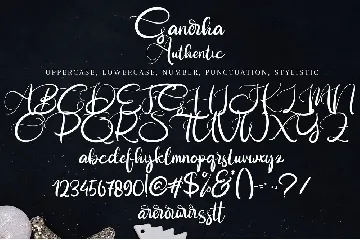 Ganorha
Authentic
UPPERCASE, LOWERCASE, NUMBER, PUNCTUATION, STYLISTIC
ABCDEFGHIJKLMN
OPQRSTUVWXYZ
abcdefghijklmnopqrstuvwxyz
1234567890!@#$%&*()-=+"?/